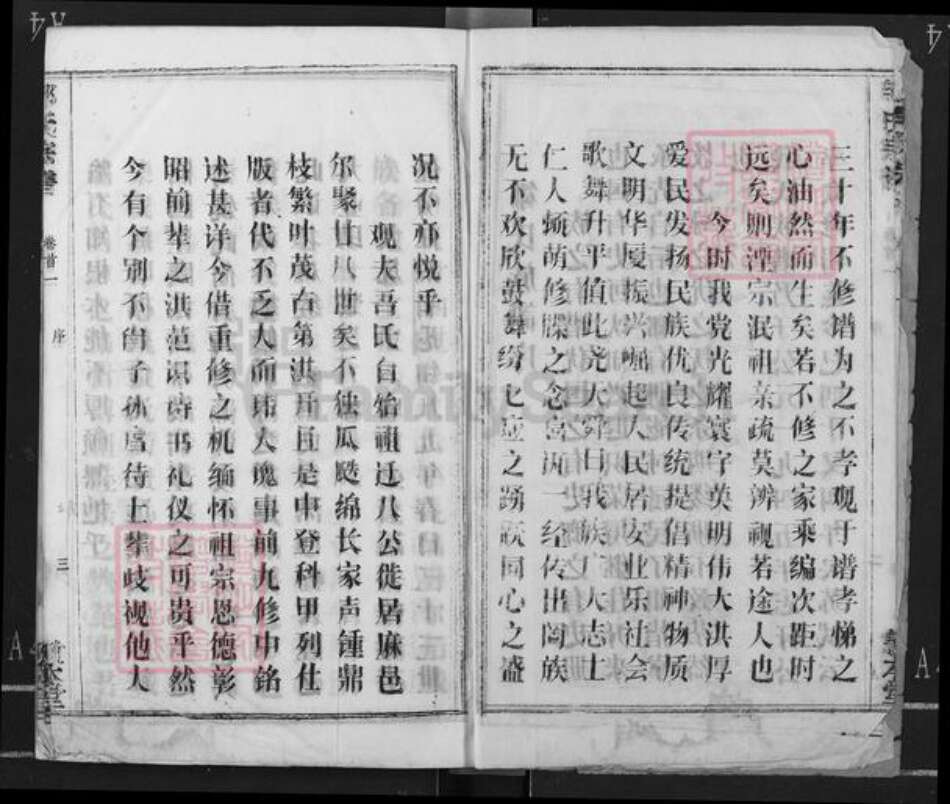 三十年不修谱为之不孝观于谱孝悌之
心油然而生矣若不修之家乘编次距时
远矣则湮宗泯祖亲疏莫辨视若途人也
今时我党光耀寰宇英明伟大洪厚
爱民发扬民族优良传统提倡精神物质
文明华厦振兴崛起人民居安业乐社会
歌舞升平值此尧天舜日我族广大志士
仁人倾萌修牒之念 一经传出阖族
无不欢欣鼓舞纷纷 之踊跃同心之盛
况不亦悦乎
观夫吾氏自始祖迁八公徙居麻邑
尔聚廿八世矣不独瓜瓞绵长家声钟鼎
枝繁叶茂 第洪 且是中登科甲列仕
版者代不乏人而玮人瑰事前九修中铭
述甚详今借重修之机缅怀祖宗恩德彰
昭前辈之洪范识诗书礼仪之可贵乎然
今有个别不肖子孙 待上辈歧视他人
卷首一
序
三
本堂